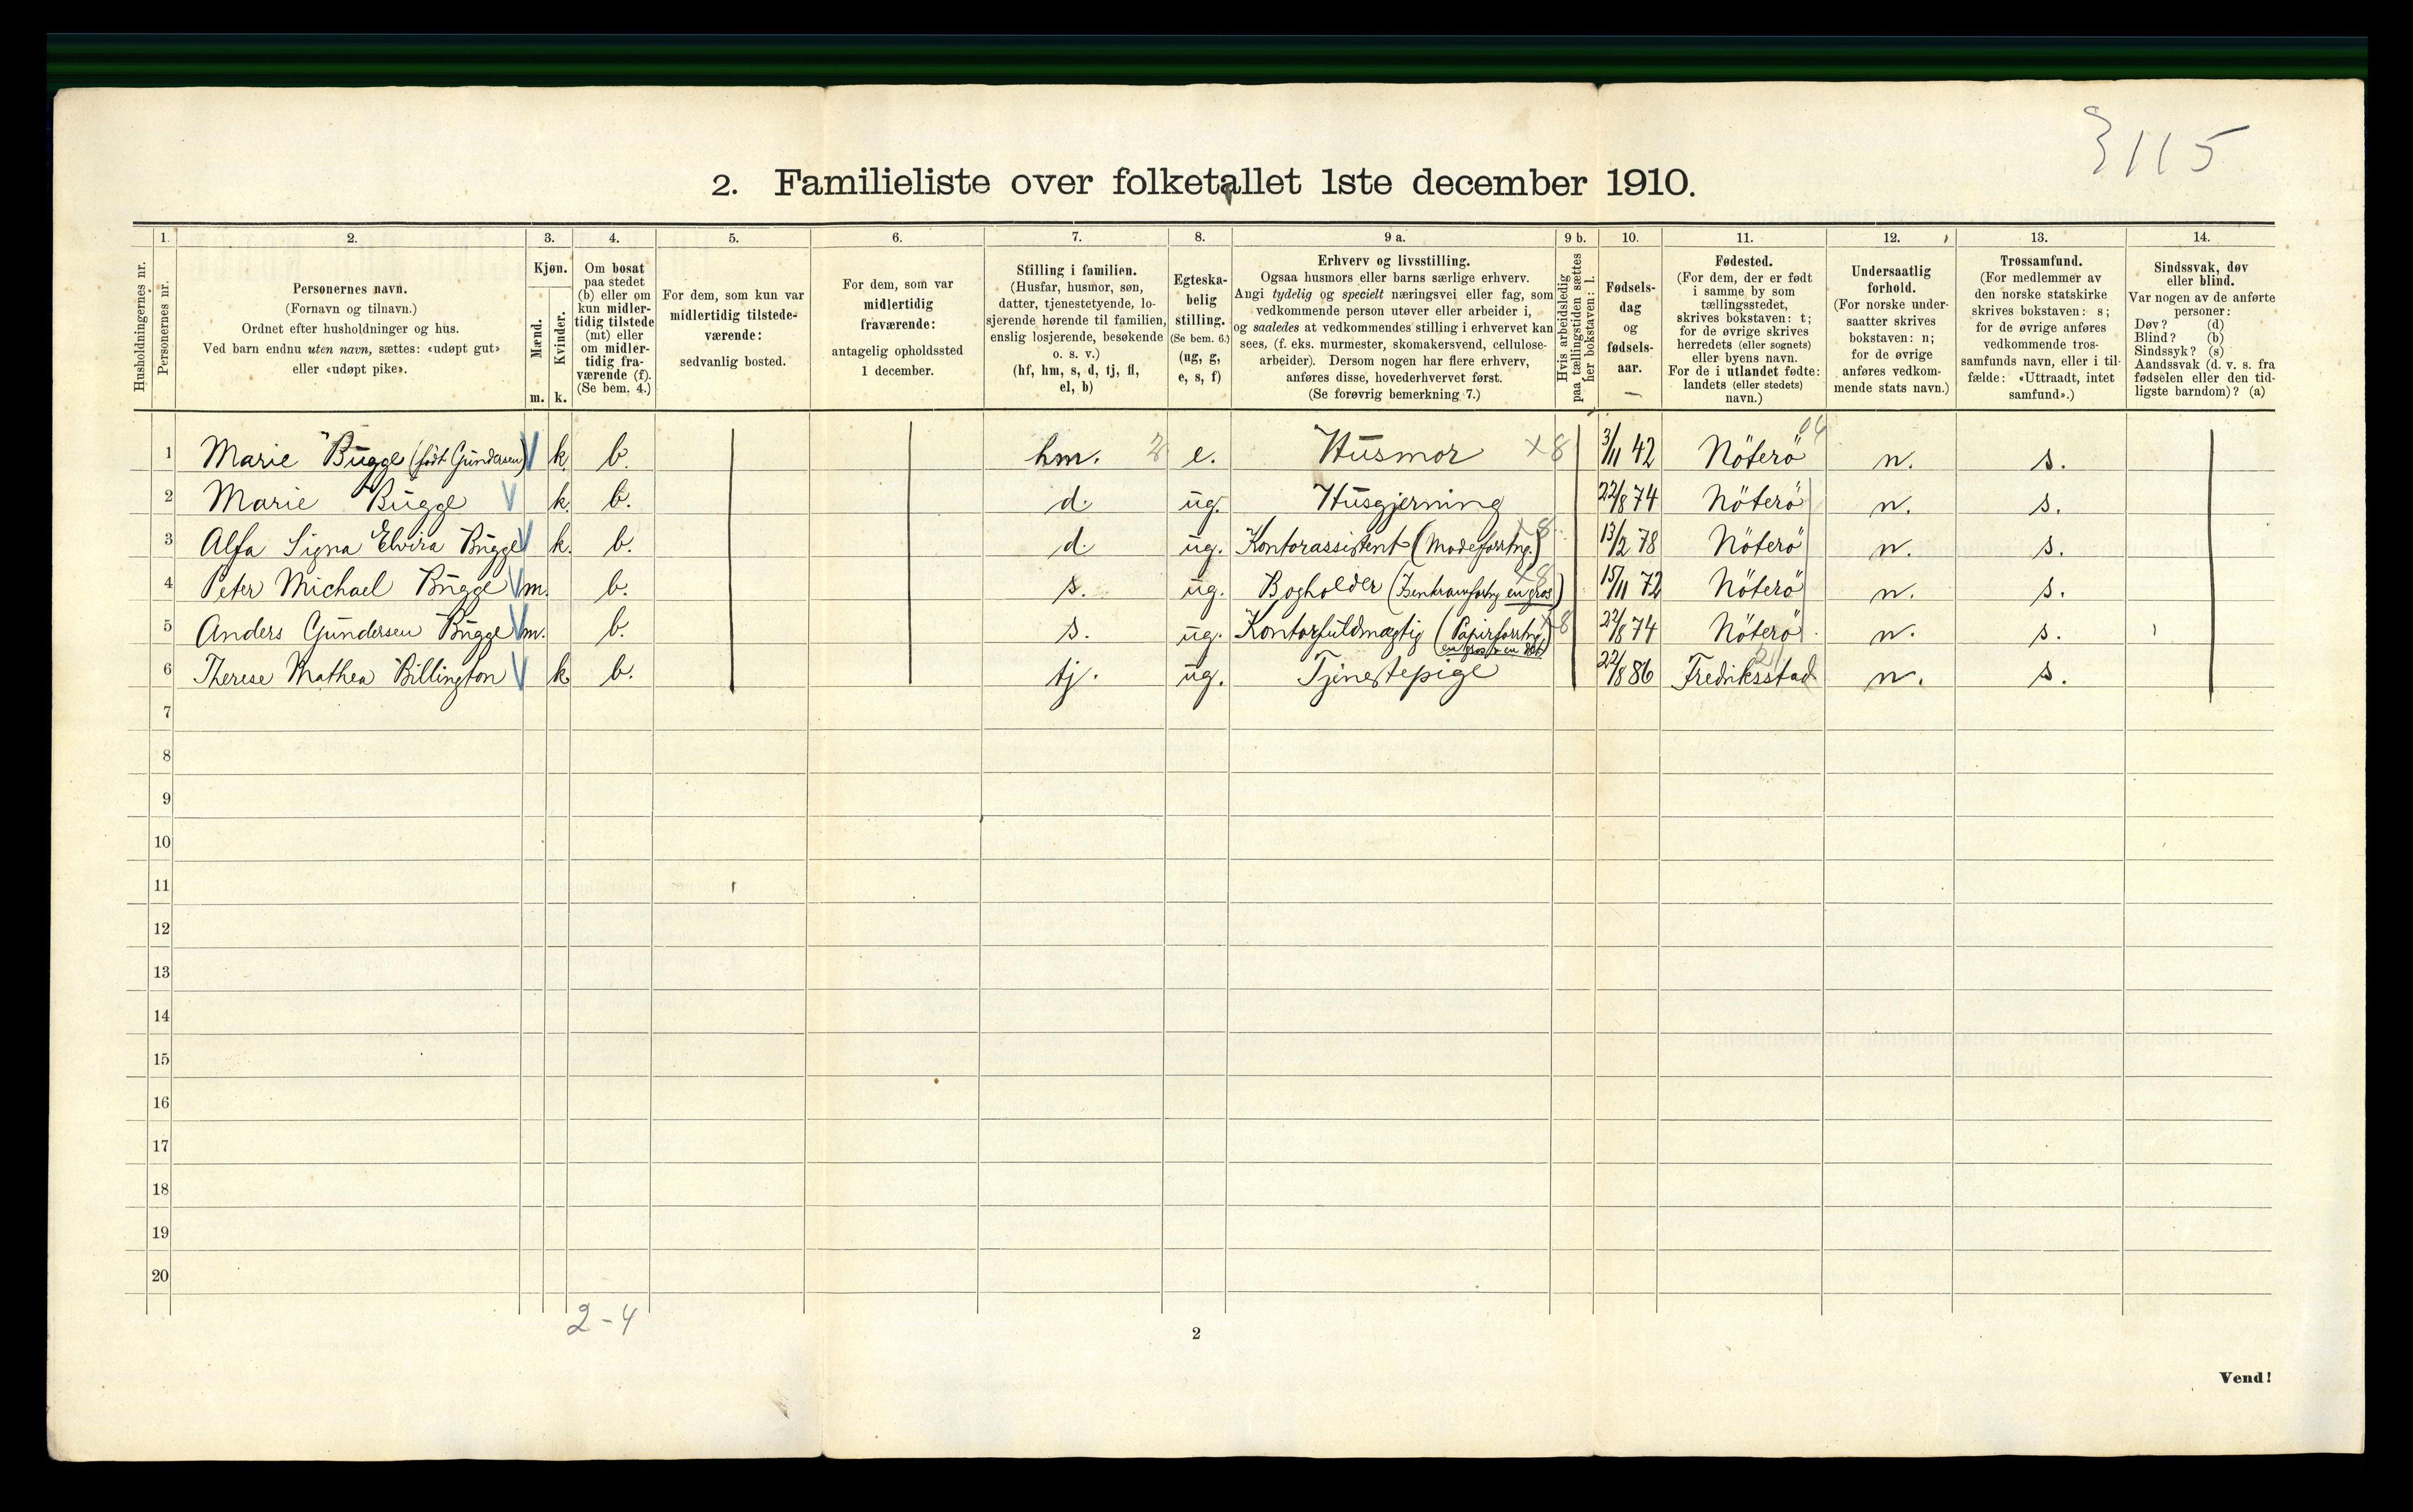 3115
2. Familieliste over folketallet 1ste december 1910.
Husholdningernes nr.
1. Personernes nr.
2. Personernes navn.
(Fornavn og tilnavn.)
Ordnet efter husholdninger og hus.
Ved barn endnu uten navn, sættes: «udøpt gut»
eller «udøpt pike».
3. Kjøn.
Mænd. m.
Kvinder. k.
4. Om bosat
paa stedet
(b) eller om
kun midler-
tidig tilstede
(mt) eller
om midler-
tidig fra-
værende (f).
(Se bem. 4.)
5. For dem, som kun var
midlertidig tilstede-
værende:
sedvanlig bosted.
6. For dem, som var
midlertidig
fraværende:
antagelig opholdssted
1 december.
7. Stilling i familien.
(Husfar, husmor, søn,
datter, tjenestetyende, lo-
sjerende hørende til familien,
enslig losjerende, besøkende
o. s. v.)
(hf, hm, s, d, tj, fl,
el, b)
8. Egteska-
belig
stilling.
(Se bem. 6.)
(ug, g,
e, s, f)
9 a. Erhverv og livsstilling.
Ogsaa husmors eller barns særlige erhverv.
Angi tydelig og specielt næringsvei eller fag, som
vedkommende person utøver eller arbeider i,
og saaledes at vedkommendes stilling i erhvervet kan
sees, (f. eks. murmester, skomakersvend, cellulose-
arbeider). Dersom nogen har flere erhverv,
anføres disse, hovederhvervet først.
(Se forøvrig bemerkning 7.)
9 b. Hvis arbeidsledig
paa tællingstiden sættes
her bokstaven: l.
10. Fødsels-
dag
og
fødsels-
aar.
11. Fødested.
(For dem, der er født
i samme by som
tællingsstedet,
skrives bokstaven: t;
for de øvrige skrives
herredets (eller sognets)
eller byens navn.
For de i utlandet fødte:
landets (eller stedets)
navn.)
12. Undersaatlig
forhold.
(For norske under-
saatter skrives
bokstaven: n;
for de øvrige
anføres vedkom-
mende stats navn.)
13. Trossamfund.
(For medlemmer av
den norske statskirke
skrives bokstaven: s;
for de øvrige anføres
vedkommende tros-
samfunds navn, eller i til-
fælde: «Uttraadt, intet
samfund».)
14. Sindssvak, døv
eller blind.
Var nogen av de anførte
personer:
Døv? (d)
Blind? (b)
Sindssyk? (s)
Aandssvak (d. v. s. fra
fødselen eller den tid-
ligste barndom)? (a)
1 Marie Bugge (født Gundersen) k. b. hm. 2 e. Husmor x8 3/11 42 Nöterö 04 n. s.
2 Marie Bugge k. b. d. ug. Husgjerning 22/8 74 Nöterö n. s.
3 Alfa Signa Elvira Bugge k. b. d ug. Kontorassistent (Modeforrtng.) x8 13/2 78 Nöterö n. s.
4 Peter Michael Bugge m. b. s. ug. Bogholder (Isenkramfortng en gros) x8 15/11 72 Nöterö n. s.
5 Anders Gundersen Bugge m. b. s. ug. Kontorfuldmægtig (Papirforrtng. x8 22/8 74 Nöterö n. s.
en gros & en det.)
6 Therese Mathea Billington k b. tj. ug. Tjenestepige 22/8 86 Fredriksstad 21 n. s.
7
8
9
10
11
12
13
14
15
16
17
18
19
20
2-4
2
Vend!